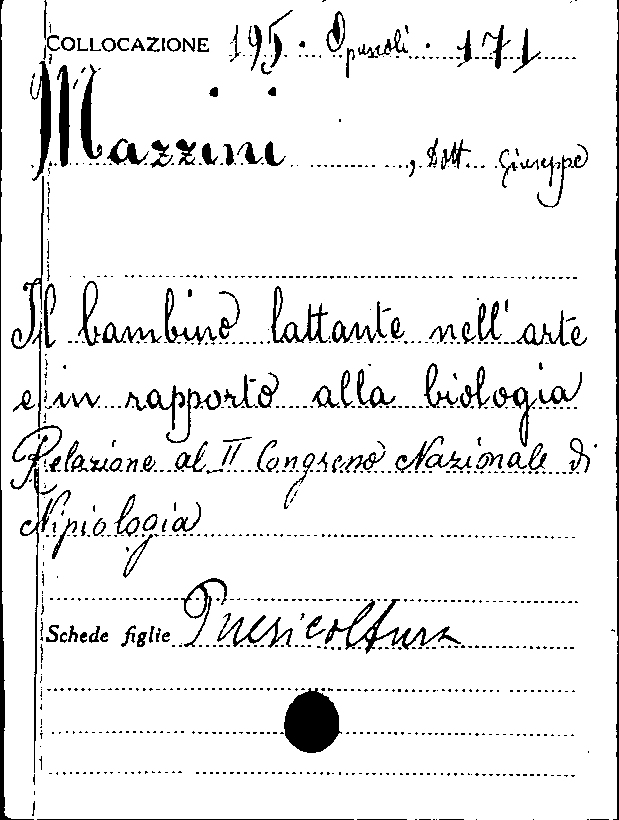 COLLOCAZIONE 195. Opuscoli. 171
Mazzini, Dott. Giuseppe
Il bambino lattante nell'arte
e in rapporto alla biologia
Relazione al II Congresso Nazionale di
Nipiologia
Schede figlie Puericoltura